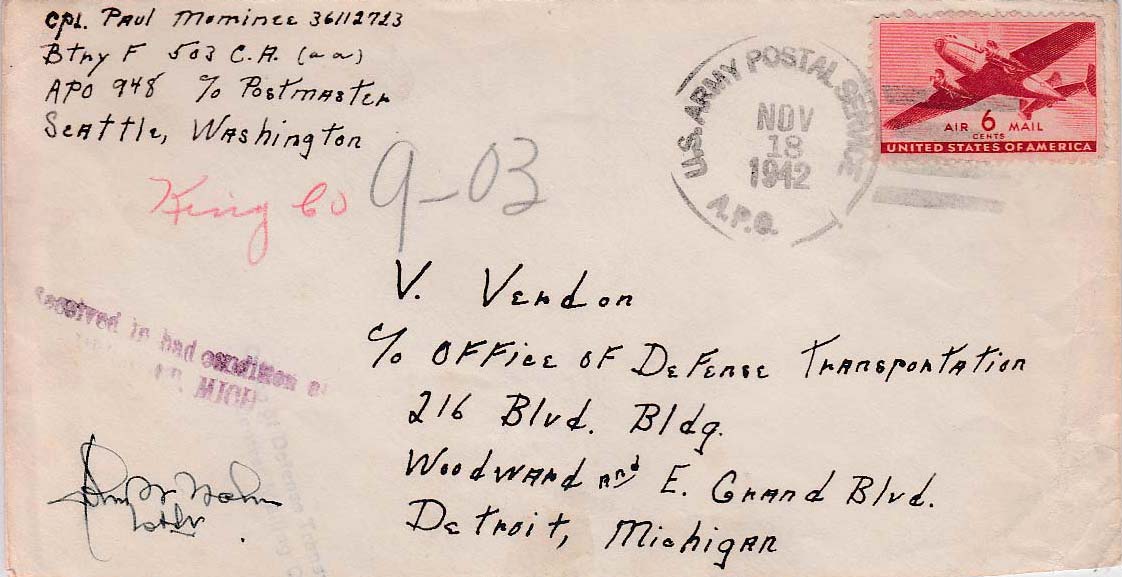 Cpl. Paul Mominee 36112723
Btry F 503 C.A. (aa)
APO 948 c/o Postmaster
Seattle, Washington
King Co
9-03
U.S. ARMY POSTAL SERVICE
NOV
18
1942
A.P.O.
AIR 6 MAIL
CENTS
UNITED STATES OF AMERICA
V. Verdon
c/o Office of Defense Transportation
216 Blvd. Bldg.
Woodward and E. Grand Blvd.
Detroit, Michigan